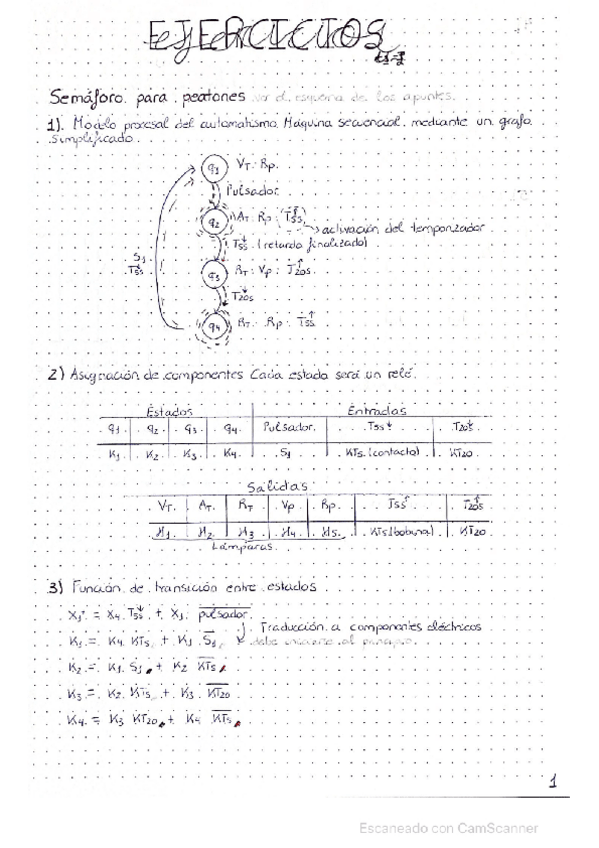 EJERCICIOS
Semáforo para peatones ver el esquema de los apuntes.
1). Modelo procesal del automatismo. Máquina secuencial mediante un grafo
simplificado
q1 VT. Rp.
Pulsador
q2 AT. Rp. T5s↑
activación del temporizador
T5s↓ (retardo finalizado)
S1
T5s
q3 RT. Vp. T20s↑
T20s↓
q4 RT. Rp. T5s↑
2) Asignación de componentes Cada estado será un relé.
Estados Entradas
q1. q2. q3. q4. Pulsador. T5s↓ T20↓
K1. K2. K3. K4. S1 KT5.(contacto) KT20
Salidas
VT. AT. RT Vp Rp. T5s↑ T20s↑
H1. H2. H3. H4. H5. KT5(bobina) KT20
Lámparas.
3) Función de transición entre estados
X1⁺ = X4 T5s↓ + X1 pulsador
Traducción a componentes eléctricos
K1 = K4 KT5 + K1 S1
K2 = K1 S1 + K2 KT5
K3 = K2 KT5 + K3 KT20
K4 = K3 KT20 + K4 KT5
1
Escaneado con CamScanner